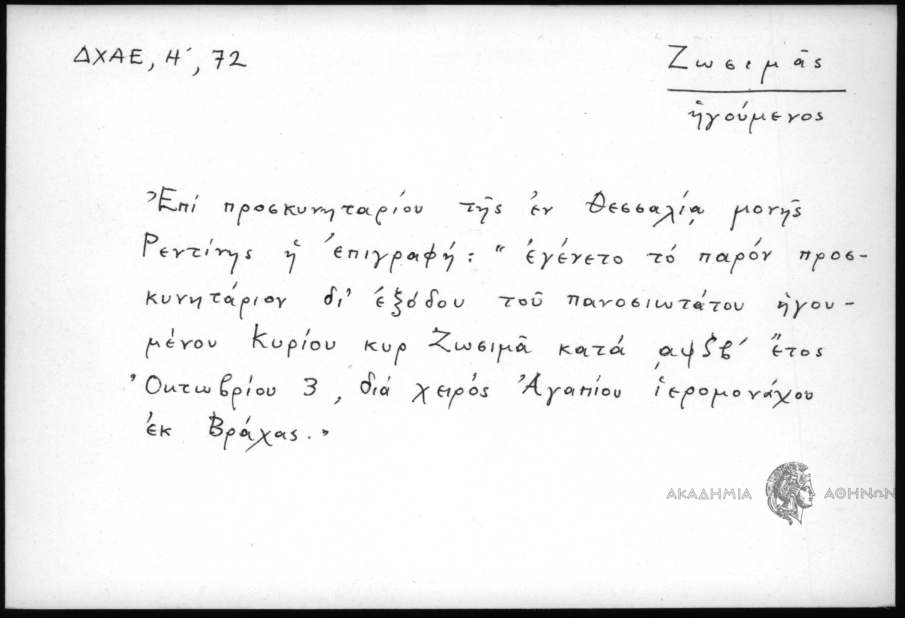 ΔΧΑΕ, Η΄, 72
Ζωσιμᾶς
ἡγούμενος
Ἐπί προσκυνηταρίου τῆς ἐν Θεσσαλίᾳ μονῆς
Ρεντίνης ἡ ἐπιγραφή: "ἐγένετο τό παρόν προσ-
κυνητάριον δι' ἐξόδου τοῦ πανοσιωτάτου ἡγου-
μένου Κυρίου κυρ Ζωσιμᾶ κατά ͵αψξβ΄ ἔτος
Ὀκτωβρίου 3, διά χειρός Ἀγαπίου ἱερομονάχου
ἐκ Βράχας."
ΑΚΑΔΗΜΙΑ ΑΘΗΝΩΝ